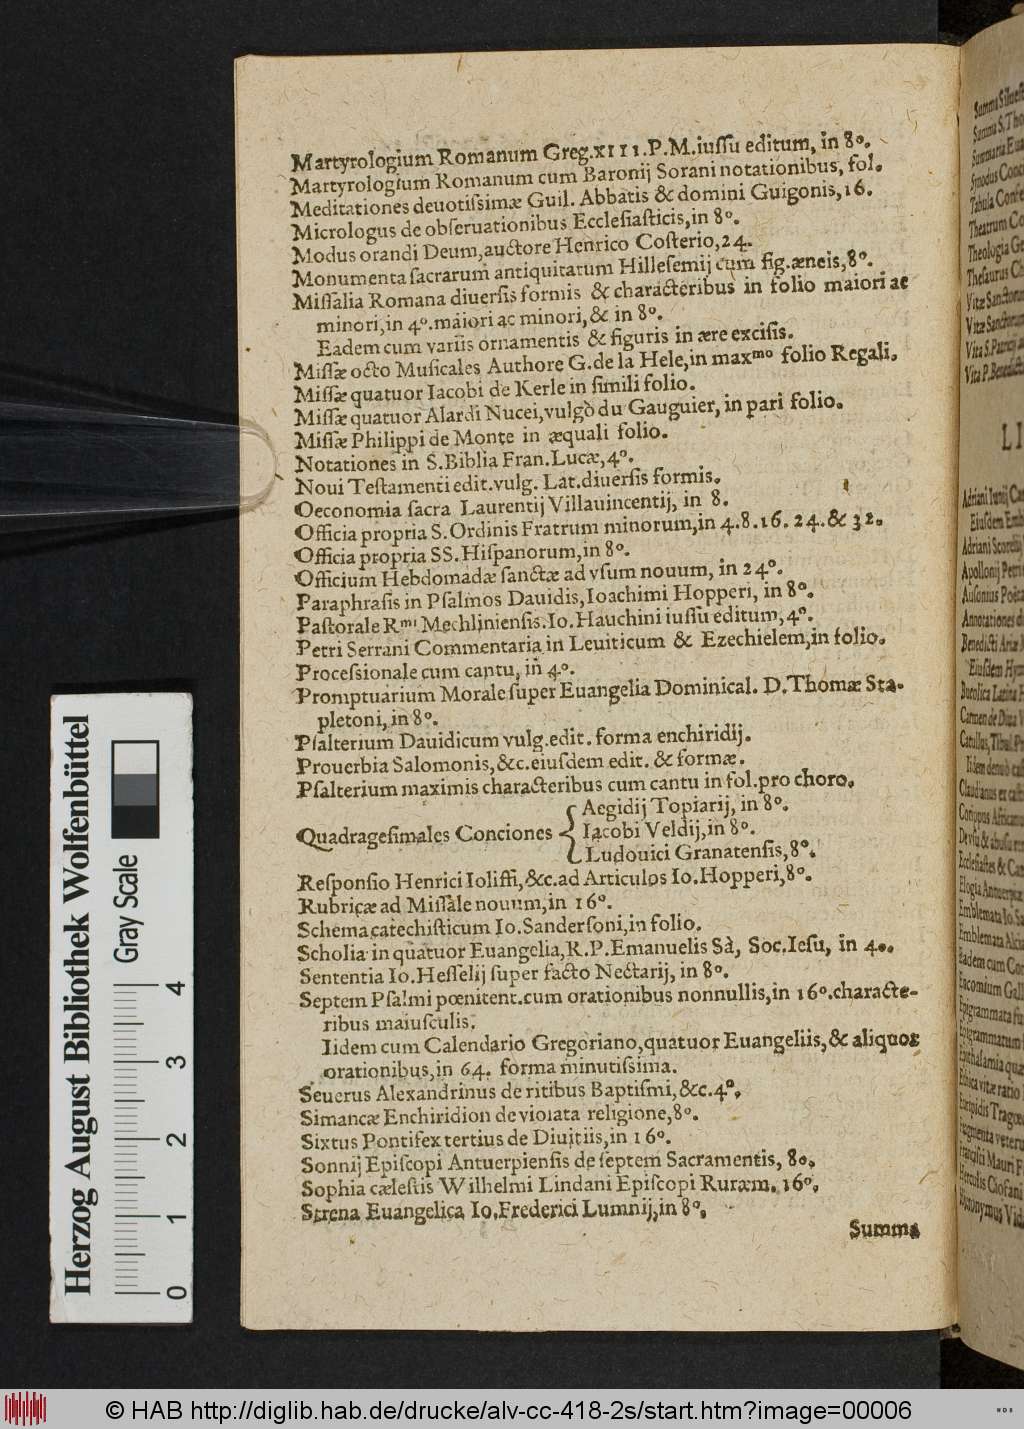 Martyrologium Romanum Greg.XIII.P.M.iussu editum, in 8º.
Martyrologium Romanum cum Baronij Sorani notationibus, fol.
Meditationes deuotissimæ Guil. Abbatis & domini Guigonis, 16.
Micrologus de obseruationibus Ecclesiasticis, in 8º.
Modus orandi Deum, auctore Henrico Costerio, 24.
Monumenta sacrarum antiquitatum Hillesemij cum fig. æneis, 8º.
Missalia Romana diuersis formis & characteribus in folio maiori ac
minori, in 4º. maiori ac minori, & in 8º.
Eadem cum variis ornamentis & figuris in ære excisis.
Missæ octo Musicales Authore G. de la Hele, in maxᵐᵒ folio Regali.
Missæ quatuor Iacobi de Kerle in simili folio.
Missæ quatuor Alardi Nucei, vulgò du Gauguier, in pari folio.
Missæ Philippi de Monte in æquali folio.
Notationes in S. Biblia Fran. Lucæ, 4º.
Noui Testamenti edit. vulg. Lat. diuersis formis.
Oeconomia sacra Laurentij Villauincentij, in 8.
Officia propria S. Ordinis Fratrum minorum, in 4. 8. 16. 24. & 32.
Officia propria SS. Hispanorum, in 8º.
Officium Hebdomadæ sanctæ ad vsum nouum, in 24º.
Paraphrasis in Psalmos Dauidis, Ioachimi Hopperi, in 8º.
Pastorale Rᵐⁱ Mechliniensis. Io. Hauchini iussu editum, 4º.
Petri Serrani Commentaria in Leuiticum & Ezechielem, in folio.
Processionale cum cantu, in 4º.
Promptuarium Morale super Euangelia Dominical. D. Thomæ Sta-
pletoni, in 8º.
Psalterium Dauidicum vulg. edit. forma enchiridij.
Prouerbia Salomonis, &c. eiusdem edit. & formæ.
Psalterium maximis characteribus cum cantu in fol. pro choro.
Quadragesimales Conciones { Aegidij Topiarij, in 8º.
Iacobi Veldij, in 8º.
Ludouici Granatensis, 8º.
Responsio Henrici Ioliffi, &c. ad Articulos Io. Hopperi, 8º.
Rubricæ ad Missale nouum, in 16º.
Schema catechisticum Io. Sandersoni, in folio.
Scholia in quatuor Euangelia, R. P. Emanuelis Sà, Soc. Iesu, in 4º.
Sententia Io. Hesselij super facto Nectarij, in 8º.
Septem Psalmi pœnitent. cum orationibus nonnullis, in 16º. characte-
ribus maiusculis.
Iidem cum Calendario Gregoriano, quatuor Euangeliis, & aliquot
orationibus, in 64. forma minutissima.
Seuerus Alexandrinus de ritibus Baptismi, &c. 4º.
Simancæ Enchiridion de violata religione, 8º.
Sixtus Pontifex tertius de Diuitiis, in 16º.
Sonnij Episcopi Antuerpiensis de septem Sacramentis, 8º.
Sophia cælestis Wilhelmi Lindani Episcopi Ruræm. 16º.
Strena Euangelica Io. Frederici Lumnij, in 8º.
Summa
Herzog August Bibliothek Wolfenbüttel
Gray Scale
0 1 2 3 4
© HAB http://diglib.hab.de/drucke/alv-cc-418-2s/start.htm?image=00006